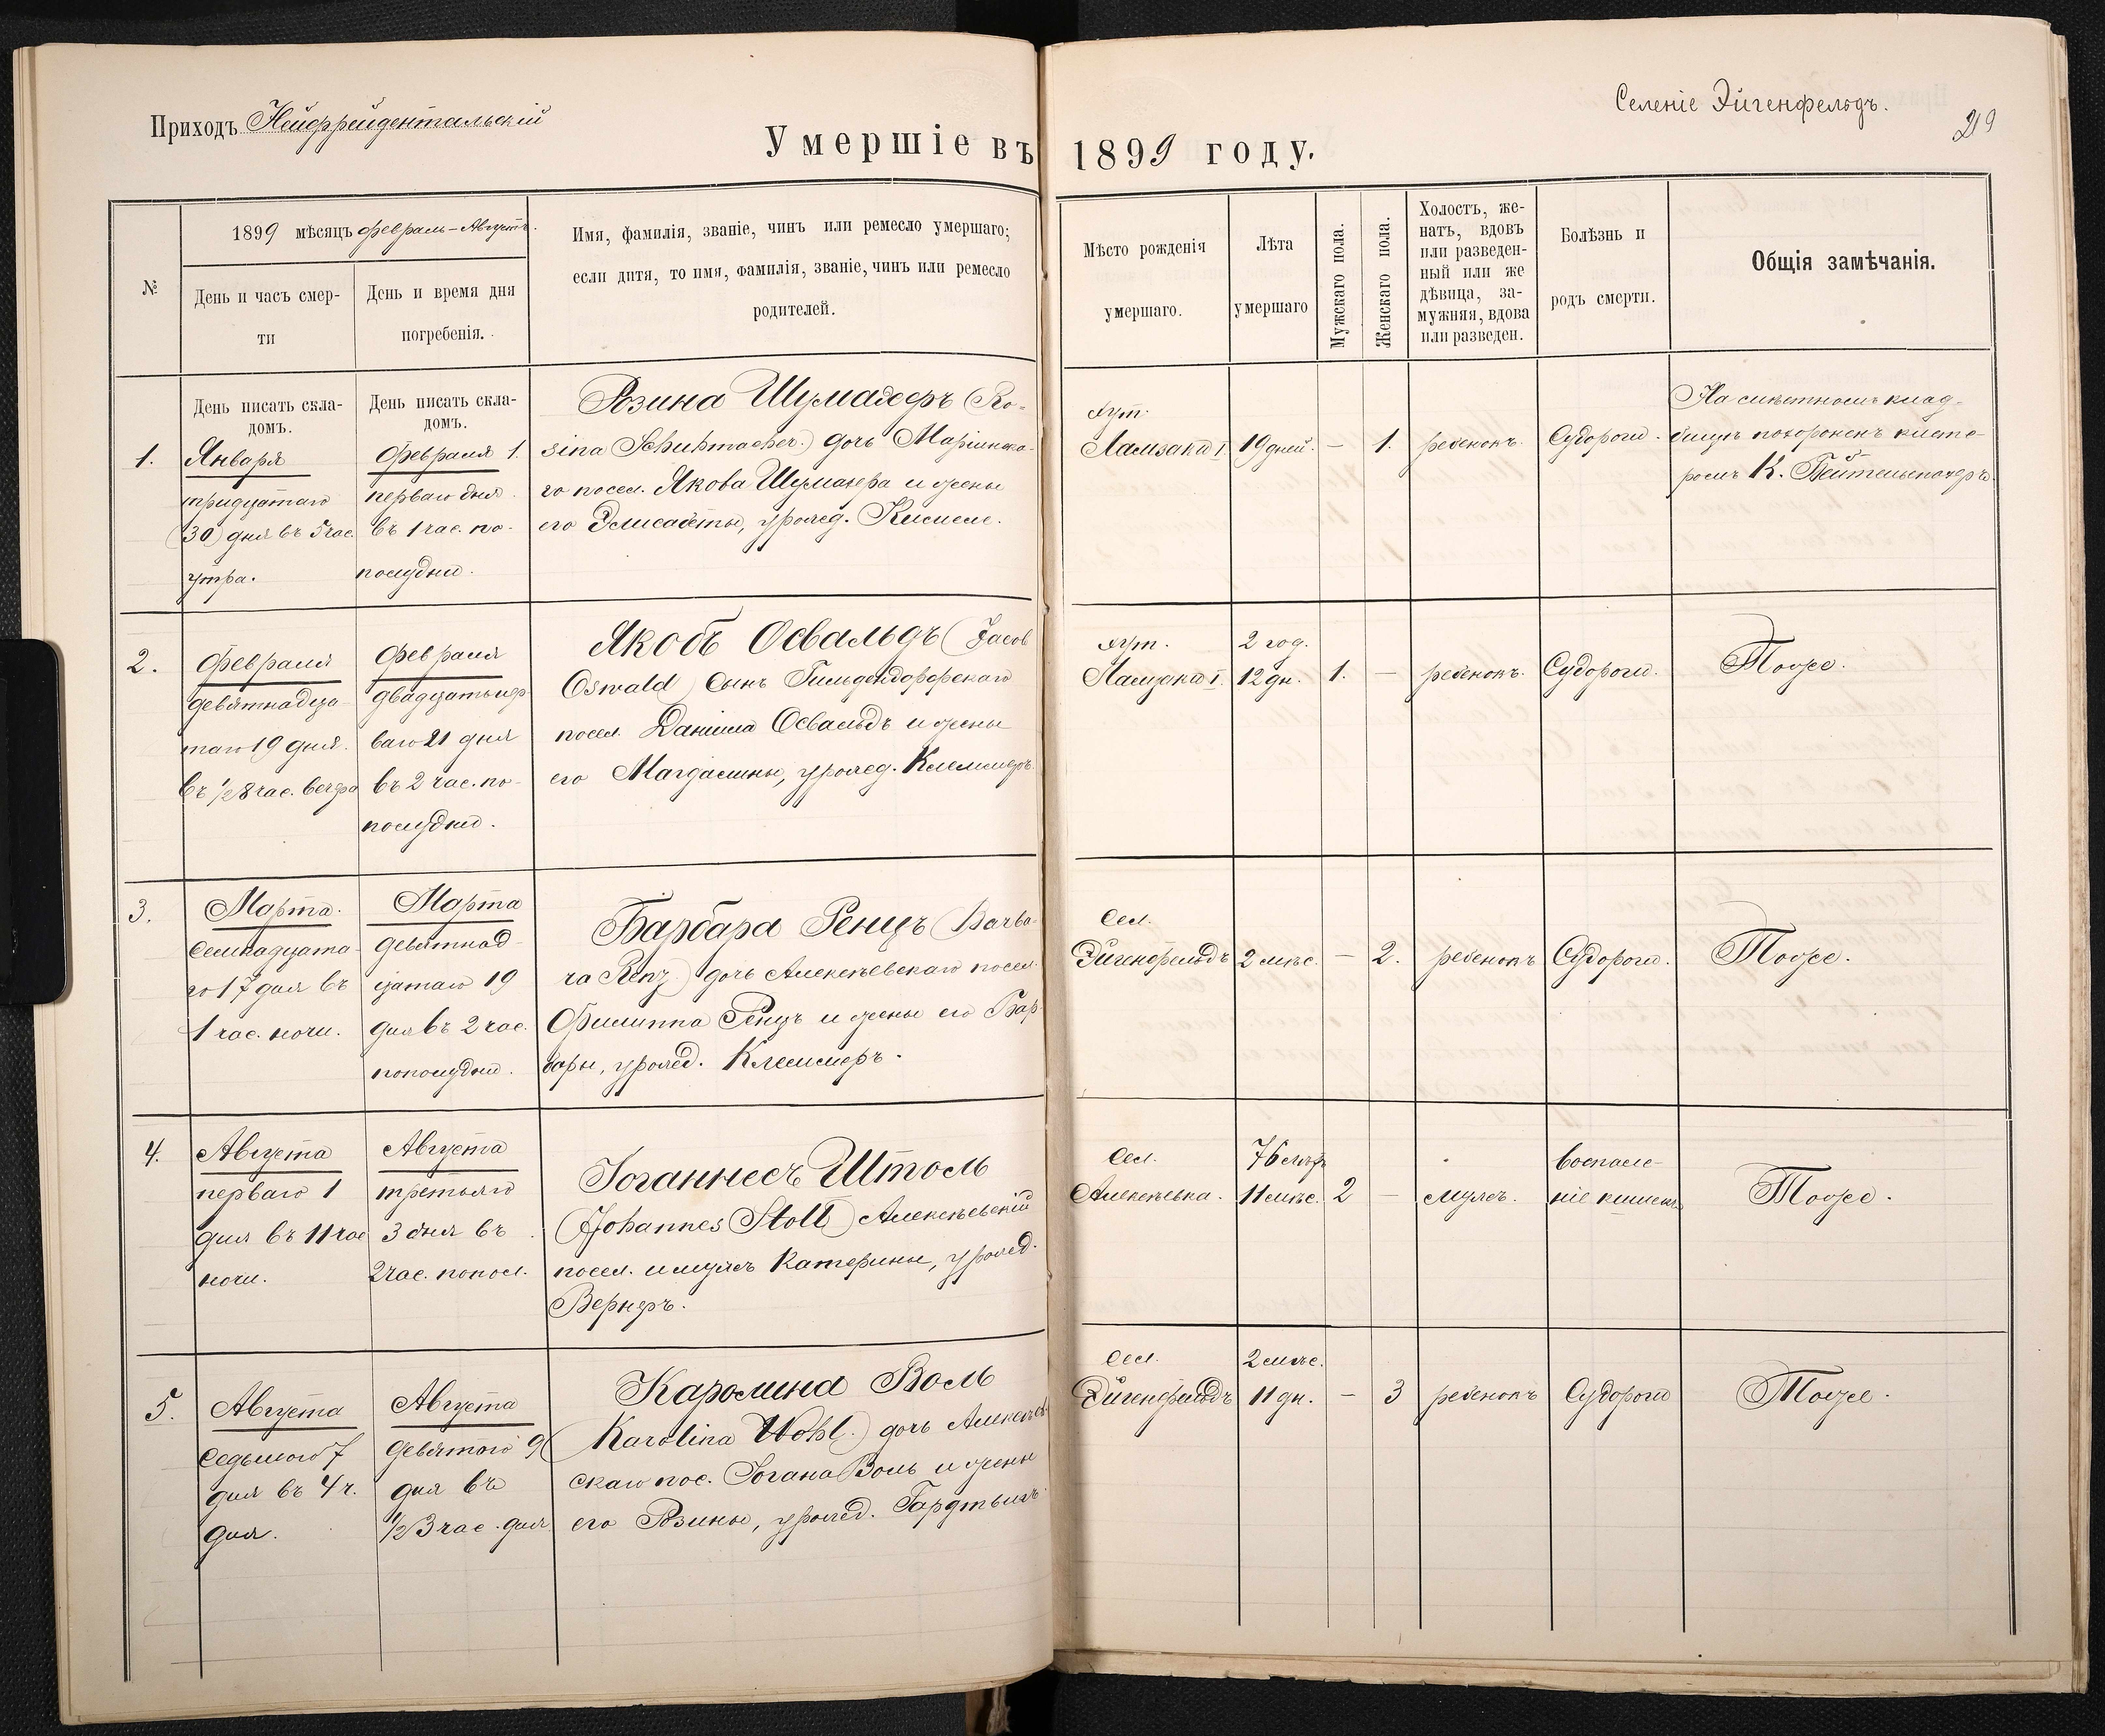 Приходъ Нейфрейдентальскій
Селеніе Эйгенфельдъ.
29
Умершіе въ 1899 году.
№
1899 мѣсяцъ Февраль-Августъ.
День и часъ смер-
ти
День и время дня
погребенія.
Имя, фамилія, званіе, чинъ или ремесло умершаго;
если дитя, то имя, фамилія, званіе, чинъ или ремесло
родителей.
Мѣсто рожденія
умершаго.
Лѣта
умершаго
Мужскаго пола.
Женскаго пола.
Холостъ, же-
натъ, вдовъ
или разведен-
ный или же
дѣвица, за-
мужняя, вдова
или разведен.
Болѣзнь и
родъ смерти.
Общія замѣчанія.
День писать скла-
домъ.
День писать скла-
домъ.
1.
Января
тридцатаго
(30) дня въ 5 час.
утра.
Февраля 1.
перваго дня
въ 1 час. по-
полудни.
Розина Шумахеръ (Ro-
sina Schuhmacher.) дочь Маріинска-
го посел. Якова Шумахера и жены
его Элисабеты, урожд.
хут.
I.
19 дней.
—
1.
ребенокъ.
Судороги.
На клад-
бищѣ похороненъ кисте-
ромъ К.
2.
Февраля
девятнадца-
таго 19 дня.
въ 1/2 8 час. вечера
Февраля
двадцатьпер-
ваго 21 дня
въ 2 час. по-
полудни.
Якобъ Освальдъ (Jacob
Oswald) сынъ Гильдендорфскаго
посел. Даніила Освальдъ и жены
его Магдалины, урожд. Клеммеръ.
хут.
I.
2 год.
12 дн.
1.
—
ребенокъ.
Судороги.
Тоже.
3.
Марта.
семнадцата-
го 17 дня въ
1 час. ночи.
Марта
девятнад-
цатаго 19
дня въ 2 час.
пополудни.
Барбара Ренцъ (Barba-
ra Renz) дочь Алексѣевскаго посел.
Филиппа Ренцъ и жены его Бар-
бары, урожд. Клеммеръ.
Сел.
Эйгенфельдъ
2 мѣс.
—
2.
ребенокъ
Судороги.
Тоже.
4.
Августа
перваго 1
дня въ 11 час
ночи.
Августа
третьяго
3 дня въ
2 час. попол.
Іоганнесъ Штоль
(Johannes Stoll) Алексѣевскій
посел. и мужъ Катерины, урожд.
Вернеръ.
Сел.
Алексѣевка.
76
11 мѣс.
2
—
мужъ.
воспале-
ніе кишекъ
Тоже.
5.
Августа
седьмого 7
дня въ 4 ч.
дня.
Августа
девятаго 9
дня въ
1/2 3 час. дня
Каролина Воль
(Karolina Wohl.) дочь Алексѣев-
скаго пос. Іогана Воль и жены
его Розины, урожд.
Сел.
Эйгенфельдъ
2 мѣс.
11 дн.
—
3
ребенокъ
Судороги
Тоже.